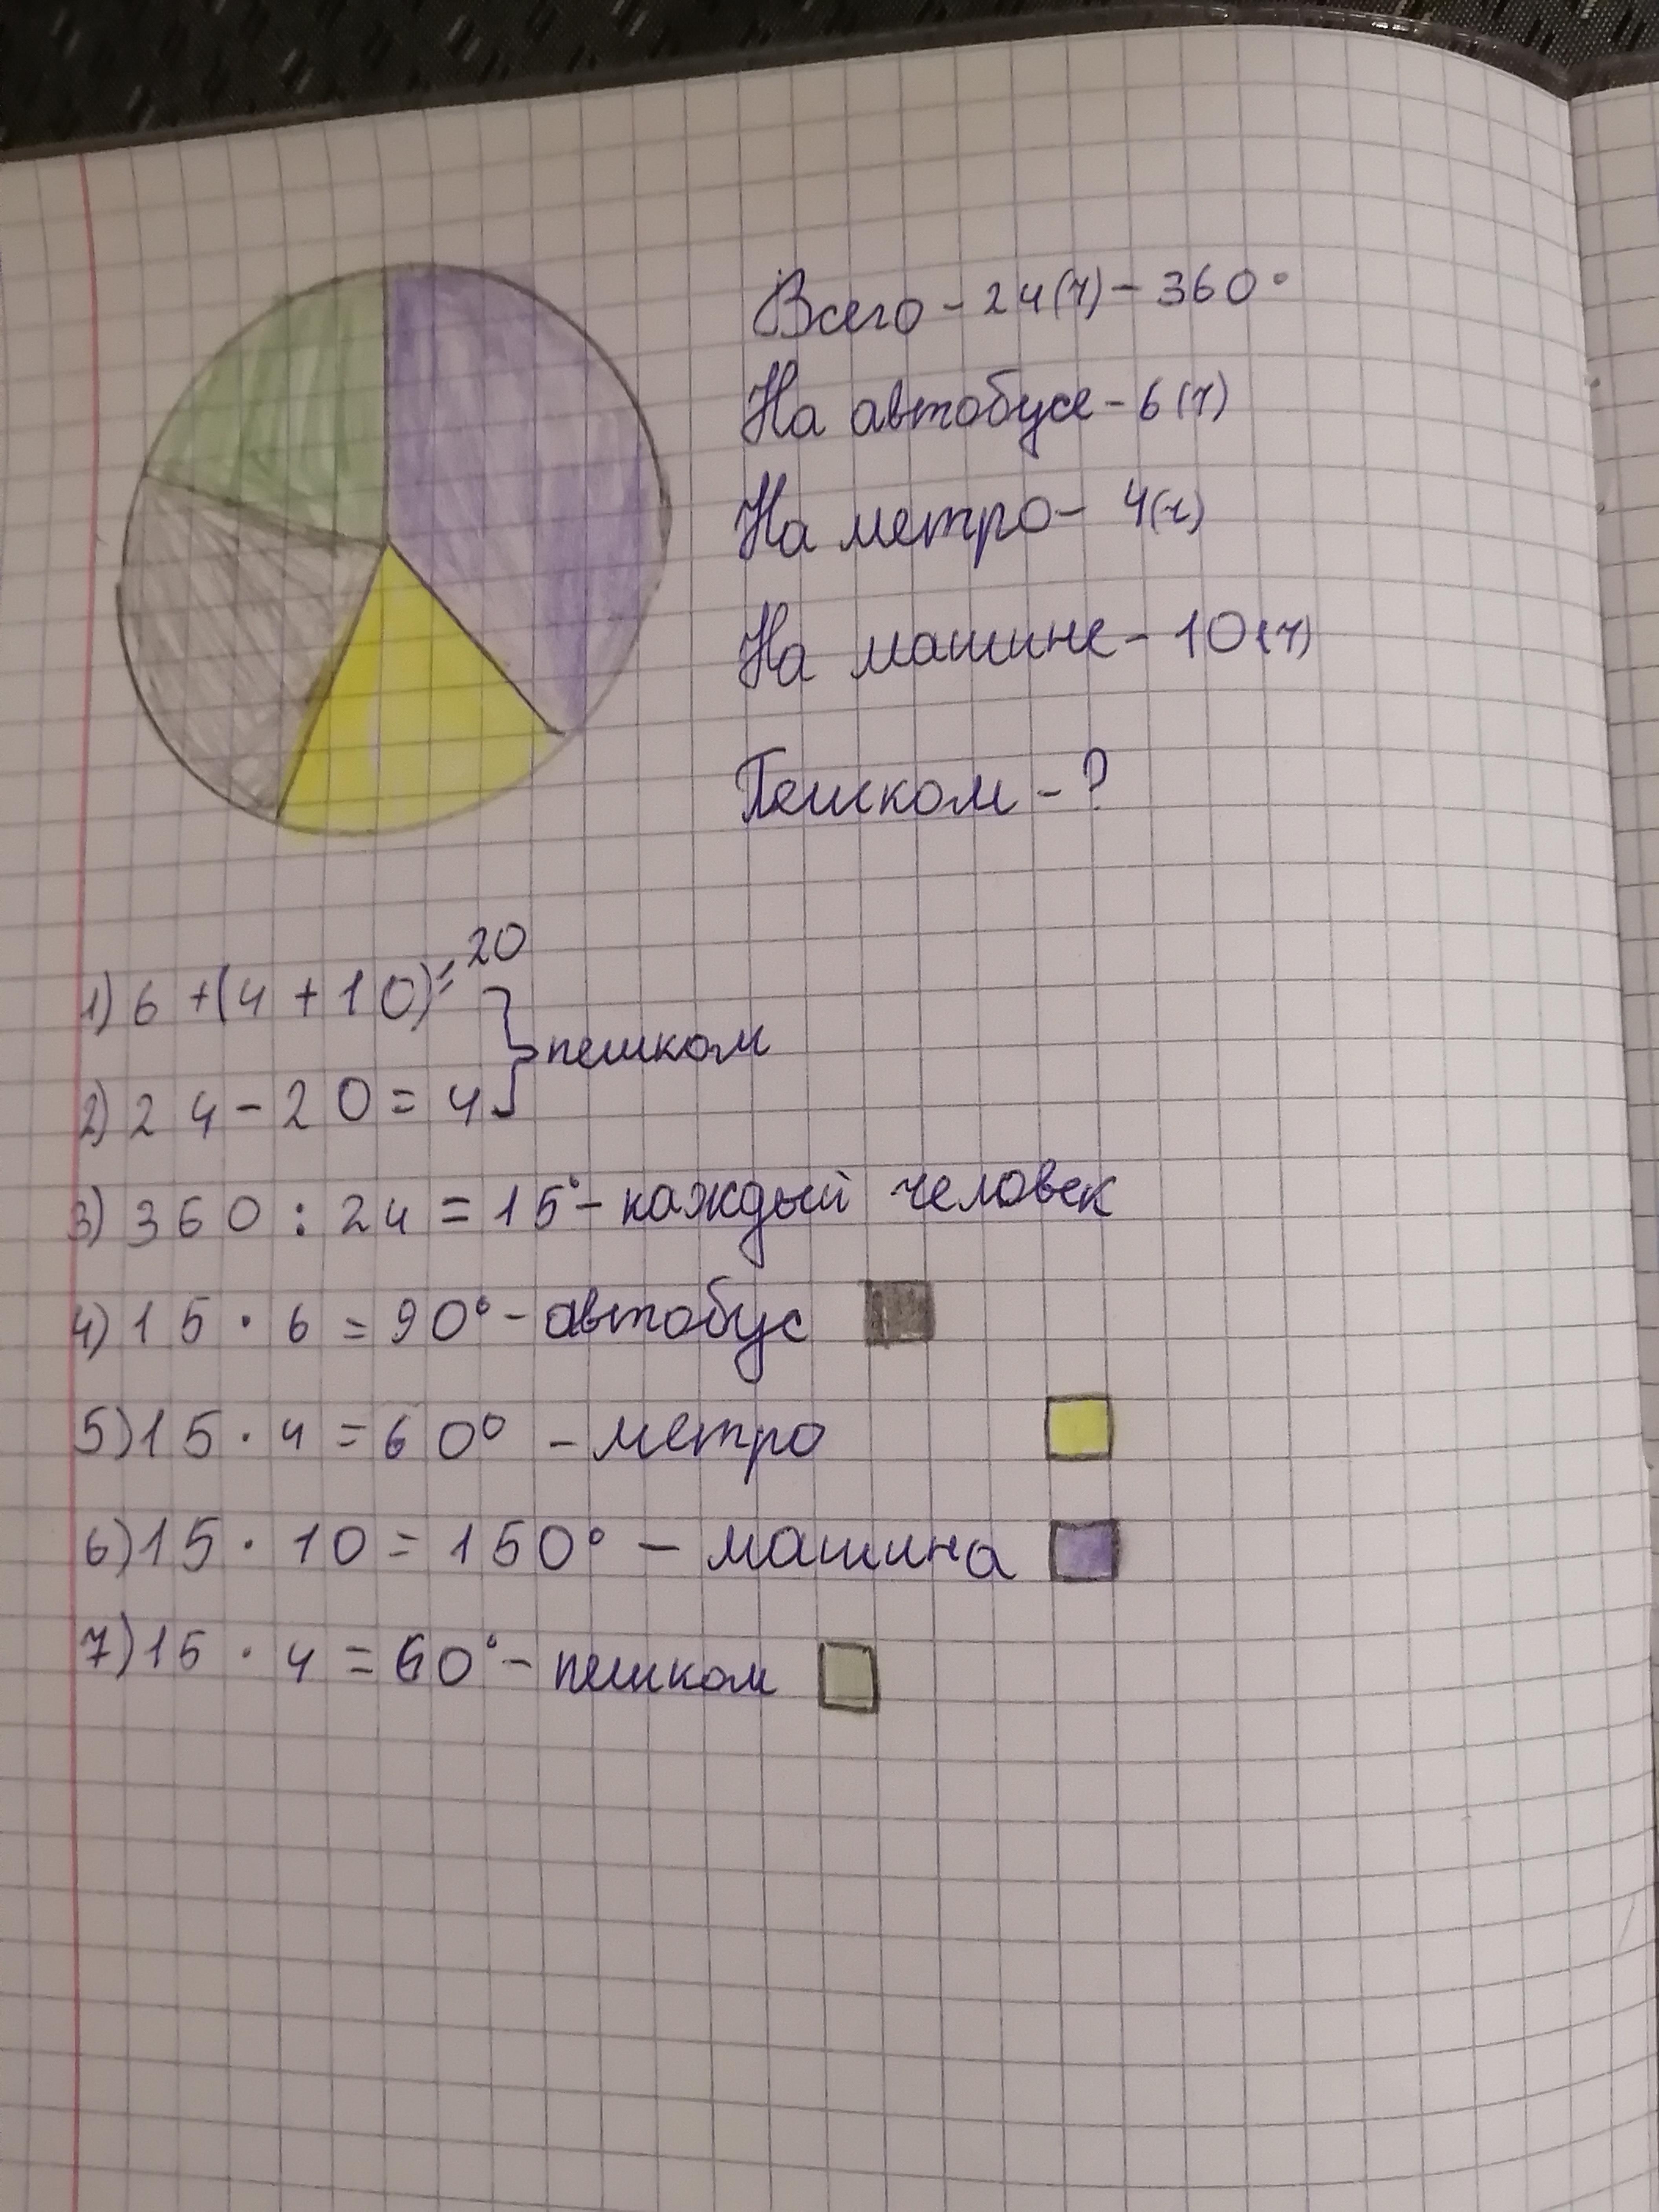 Всего - 24(ч) - 360°
На автобусе - 6(ч)
На метро - 4(ч)
На машине - 10(ч)
Пешком - ?
1) 6 + (4 + 10) = 20
пешком
2) 24 - 20 = 4
3) 360 : 24 = 15° - каждый человек
4) 15 · 6 = 90° - автобус
5) 15 · 4 = 60° - метро
6) 15 · 10 = 150° - машина
7) 15 · 4 = 60° - пешком